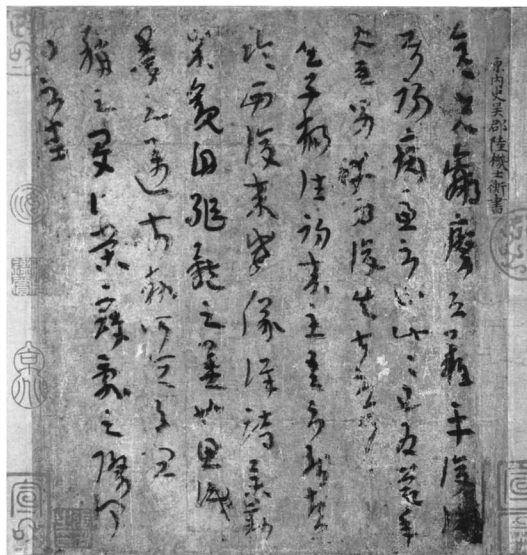 原內史吳郡陸機士衡書
彥先羸瘵恐難平復往屬
初病慮不止此此已為慶承
使唯男幸為復失前憂耳
吳子楊往初來主吾不能盡
臨西復來威儀詳跱舉動
成觀自軀體之美也思識
量之邁前執所恒有宜
稱之夏伯榮寇亂之際聞
問不悉